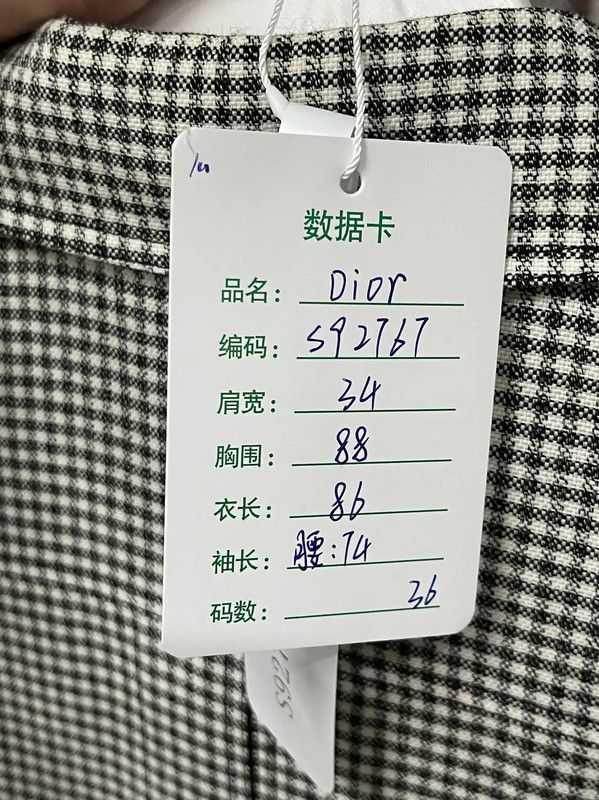 数据卡
品名： Dior
编码： S92767
肩宽： 34
胸围： 88
衣长： 86
袖长： 腰:74
码数： 36